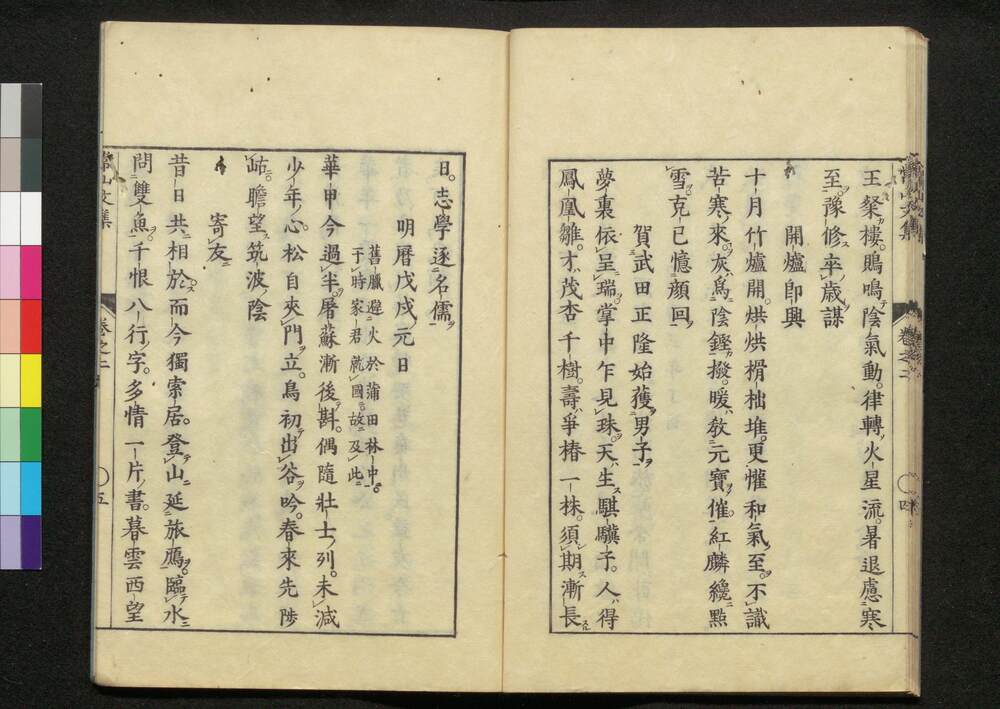 王粲樓。鵙鳴陰氣動。律轉火星流。暑退慮寒
至。豫修卒歲謀
開爐卽興
十月竹爐開。烘烘榾柮堆。更懽和氣至。不識
苦寒來。灰爲陰鏗撥。暖敎元寶催。紅麟纔點
雪。克己憶顏回
賀武田正隆始獲男子
夢裏依呈瑞。掌中乍見珠。天生騏驥子。人得
鳳凰雛。才茂杏千樹。壽爭椿一株。須期漸長
卷之二
四
日。志學逐名儒
明曆戊戌元日
舊臘避火於蒲田林中。
于時家君就國故及此
華甲今過半。屠蘇漸後斟。偶隨壯士列。未減
少年心。松自夾門立。鳥初出谷吟。春來先陟
岵。瞻望筑波陰
寄友
昔日共相於。而今獨索居。登山延旅鴈。臨水
問雙魚。千恨八行字。多情一片書。暮雲西望
山文集
卷之二
五